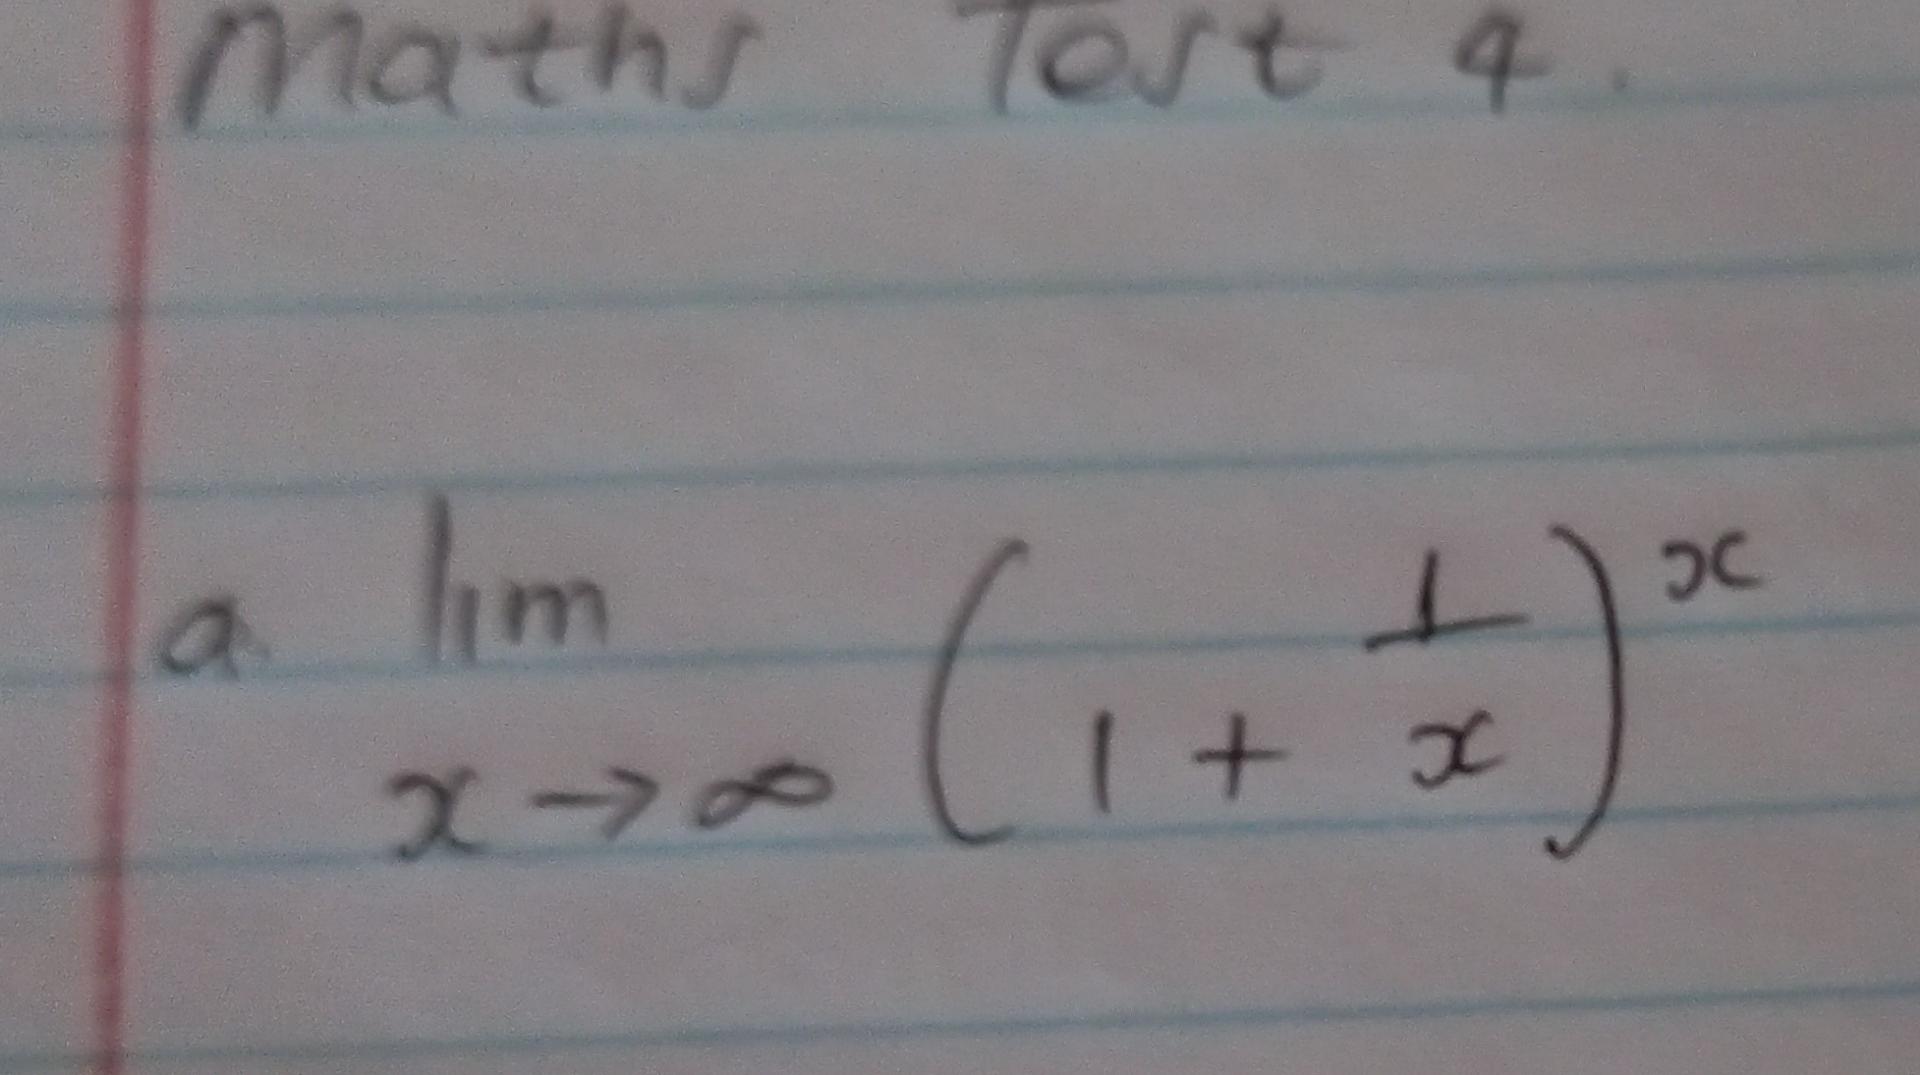 Maths Test 4.
a. lim x→∞ (1 + 1/x)^x